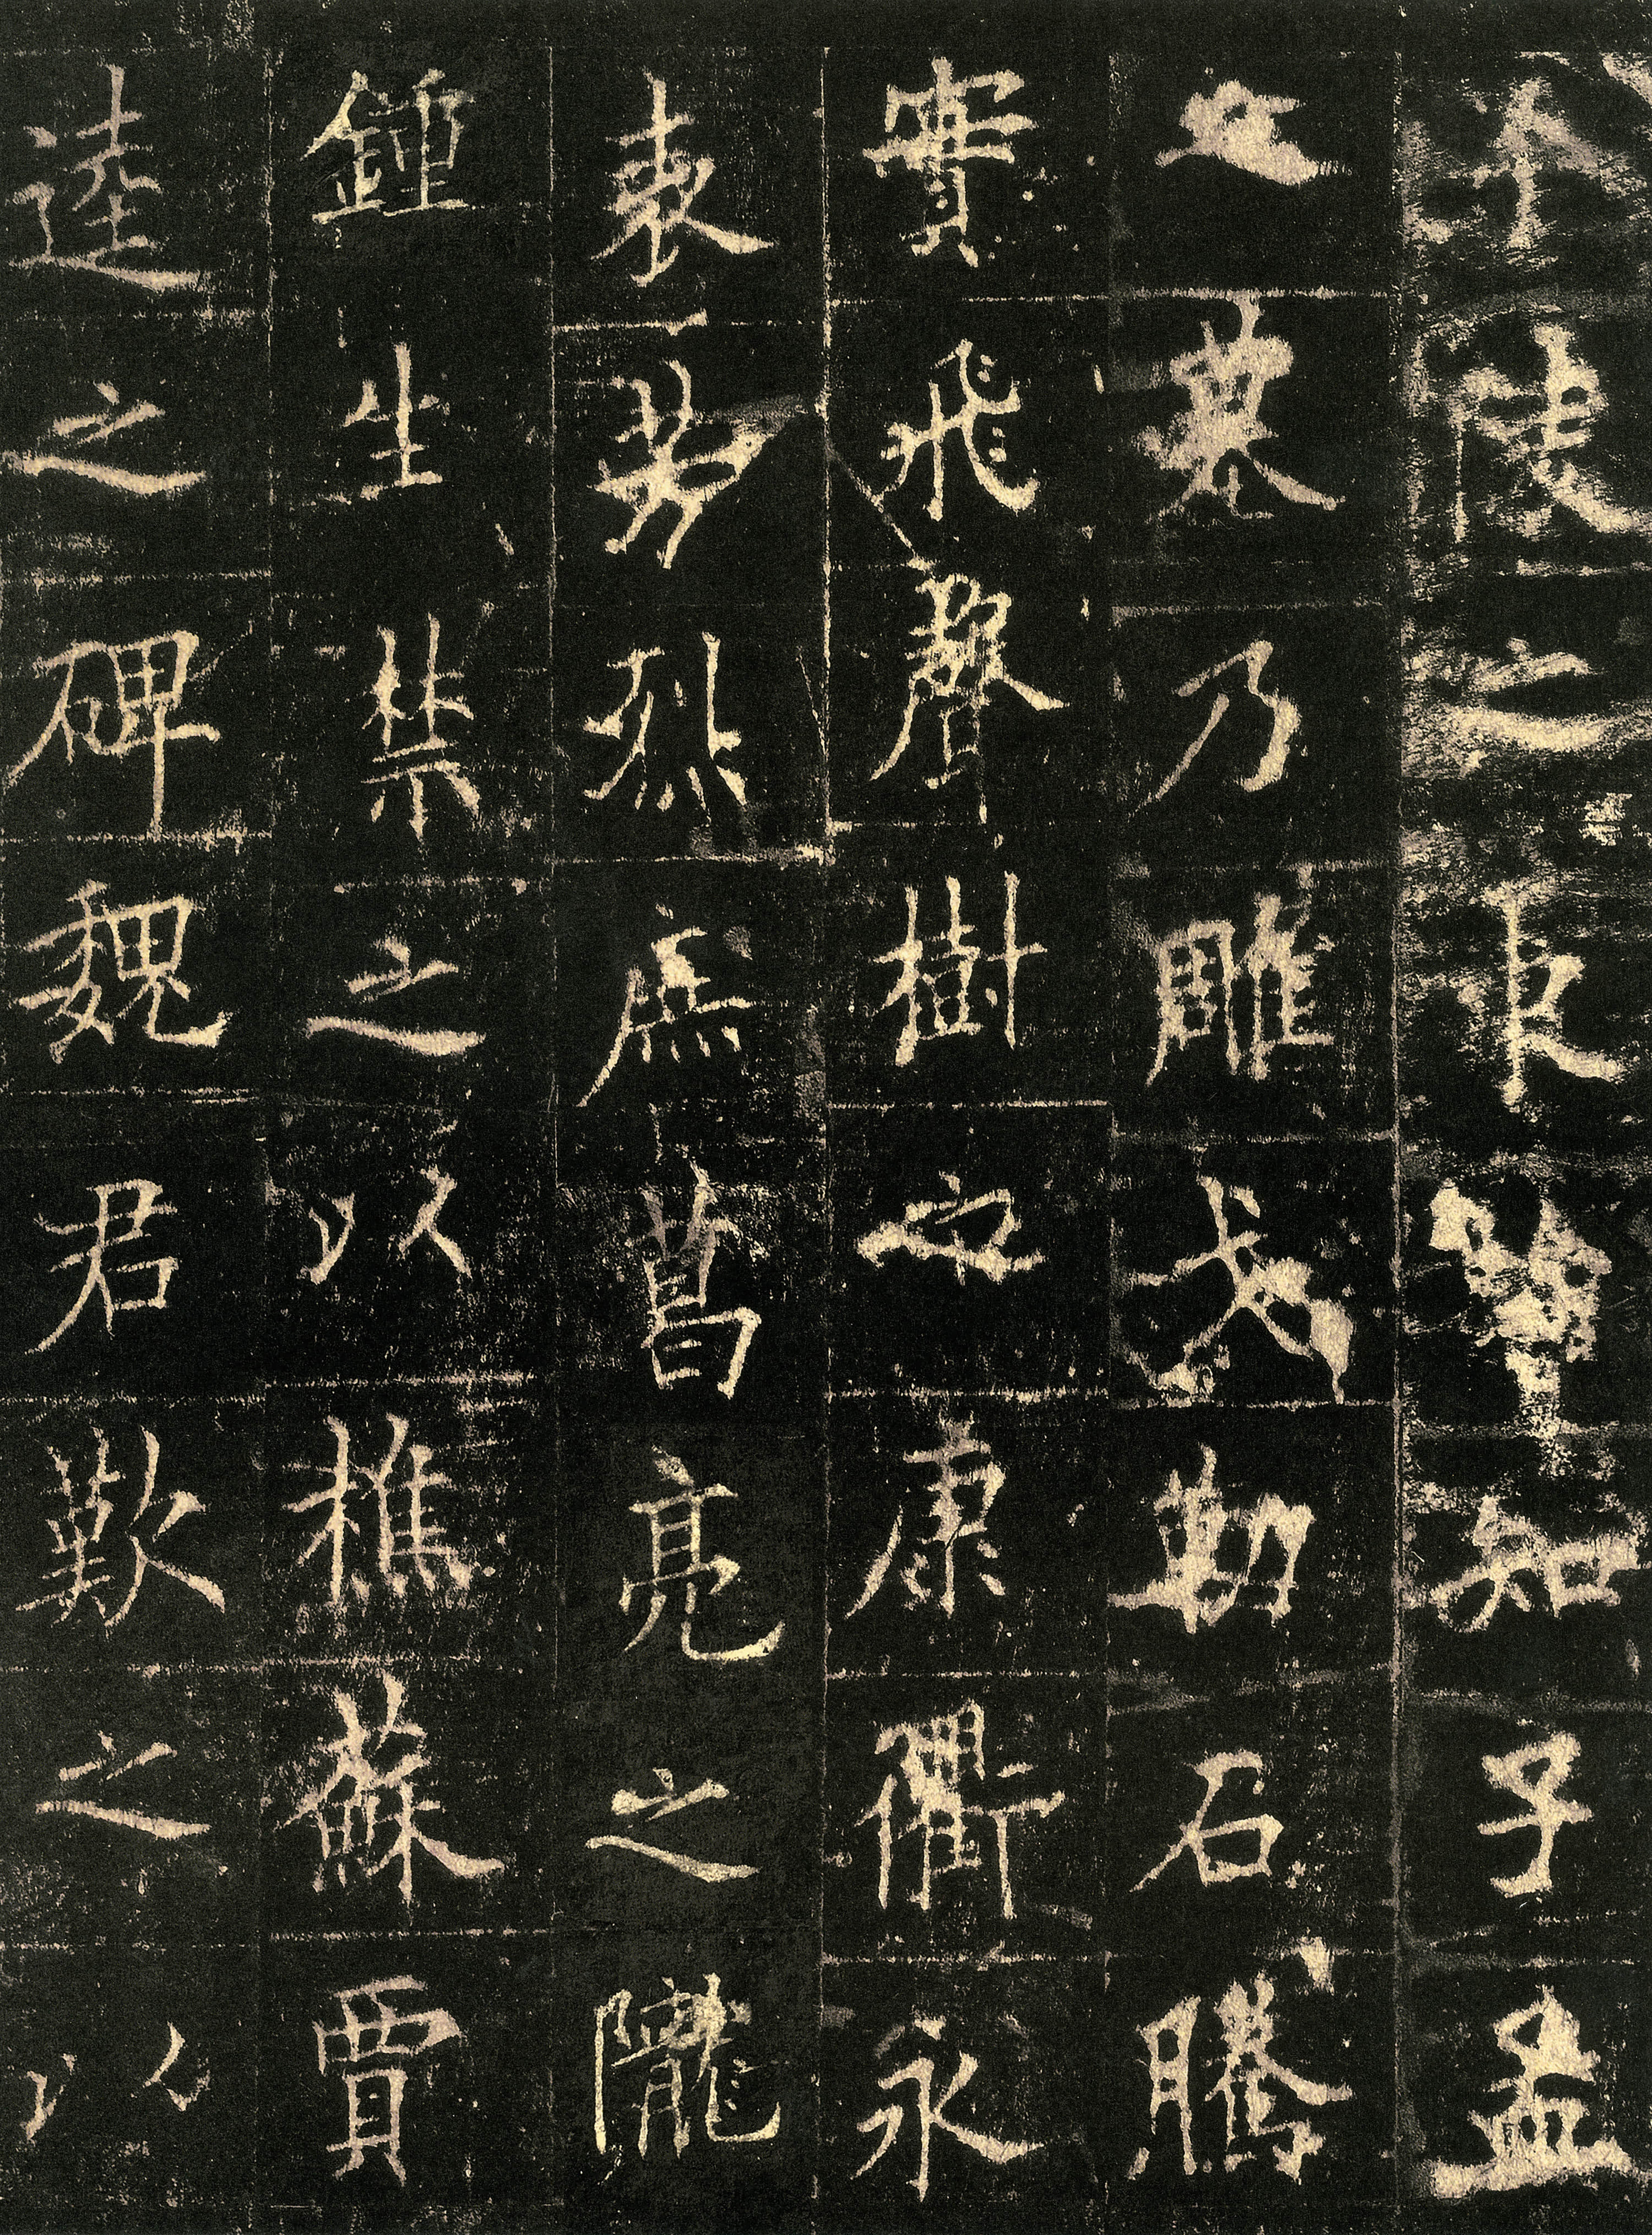 陵之良知子孟
之墓乃雕戈勒石騰
實飛聲樹之康衢永
表芳烈焉葛亮之隴
鍾生禁之以樵蘇賈
逵之碑魏君歎之以